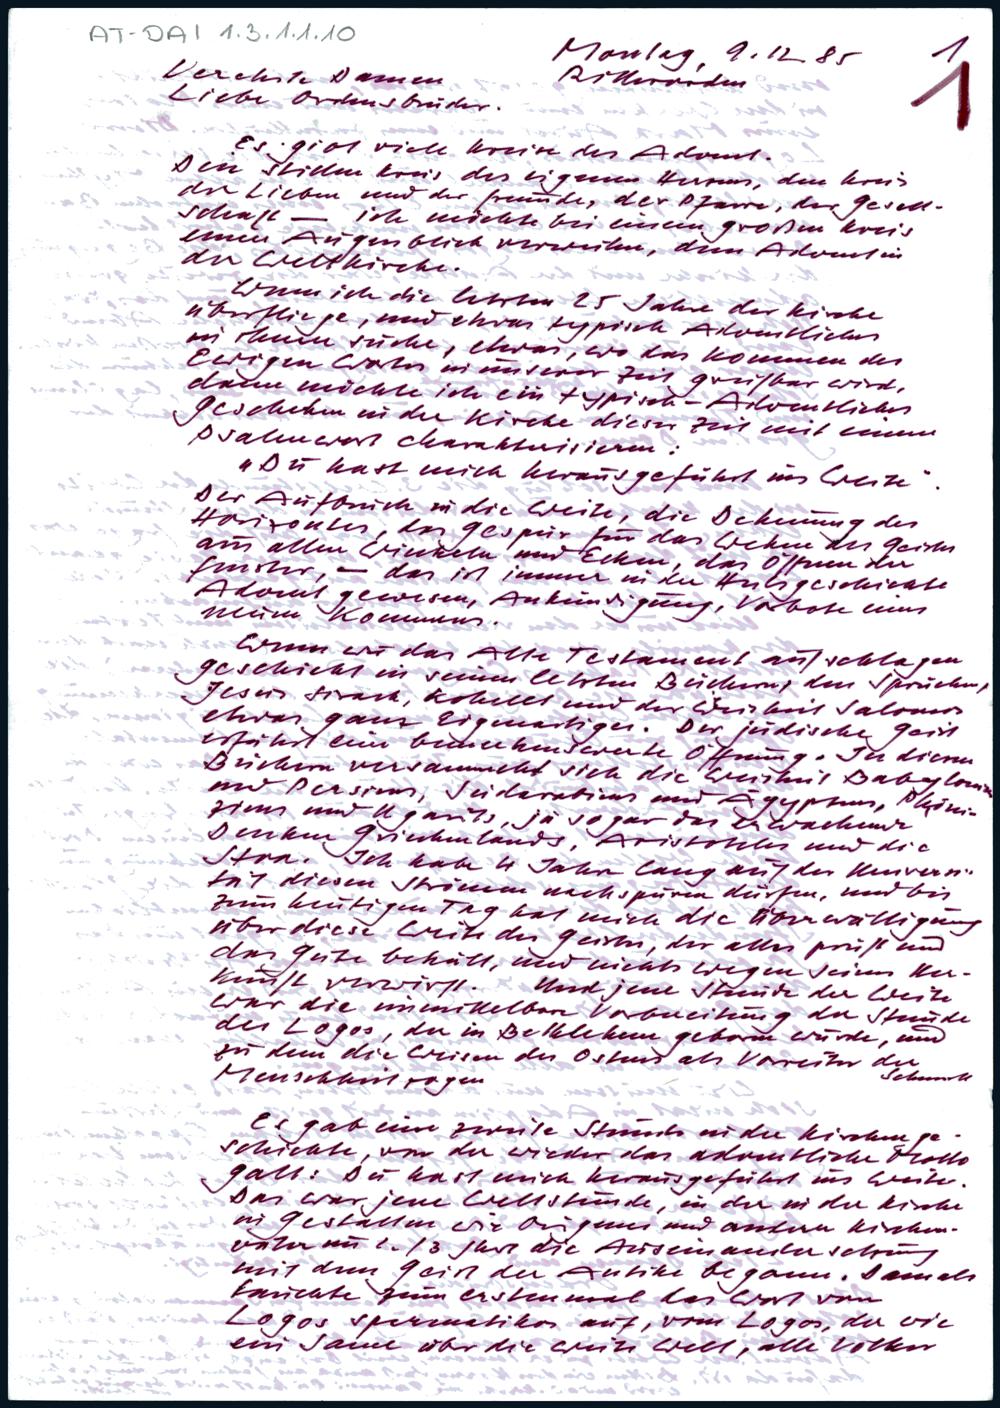 AT-DAI 1.3.1.1.10
Montag, 9.12.85
Ritterorden
1
1
Verehrte Damen
Liebe Ordensbrüder.
Es gibt viele Kreise des Advent.
Den stillen Kreis des eigenen Herzens, den Kreis
der Lieben und der Freunde, der Pfarre, der Gesell-
schaft — ich möchte bei einem großen Kreis
einen Augenblick verweilen, dem Advent in
der Weltkirche.
Wenn ich die letzten 25 Jahre der Kirche
überfliege, und etwas typisch Adventliches
in ihnen suche, etwas, wo das Kommen des
Ewigen Wortes in unserer Zeit greifbar wird,
dann möchte ich ein typisch-Adventliches
Geschehen in der Kirche dieser Zeit mit einem
Psalmwort charakterisieren:
"Du hast mich herausgeführt ins Weite".
Der Aufbruch in die Weite, die Dehnung des
Horizontes, das Gespür für das Wehen des Geistes
aus allen Winkeln und Ecken, das Öffnen der
Fenster, — das ist immer in der Heilsgeschichte
Advent gewesen, Ankündigung, Vorbote eines
neuen Kommens.
Wenn wir das Alte Testament aufschlagen
geschieht in seinen letzten Büchern, den Sprüchen,
Jesus Sirach, Kohelet und der Weisheit Salomos
etwas ganz Eigenartiges. Der jüdische Geist
erfährt eine bemerkenswerte Öffnung. In diesen
Büchern versammelt sich die Weisheit Babyloniens
und Persiens, Südarabiens und Ägyptens, Phöni-
ziens und Ugarits, ja sogar das erwachende
Denken Griechenlands, Aristoteles und die
Stoa. Ich habe 4 Jahre lang auf der Universi-
tät diesen Strömen nachspüren dürfen, und bis
zum heutigen Tag hat mich die Überwältigung
über diese Weite des Geistes, der alles prüft und
das Gute behält, und nichts wegen seiner Her-
kunft verwirft. Und jene Stunde der Weite
war die unmittelbare Vorbereitung der Stunde
des Logos, der in Bethlehem geboren wurde, und
zu dem die Weisen des Ostens als Vorreiter der
Menschheit zogen
Es gab eine zweite Stunde in der Kirchenge-
schichte, von der wieder das adventliche Motto
galt: Du hast mich herausgeführt ins Weite.
Das war jene Weltstunde, in der in der Kirche
in Gestalten wie Origenes und anderen Kirchen-
vätern im 2./3 Jhrt die Auseinandersetzung
mit dem Geist der Antike begann. Damals
tauchte zum erstenmal das Wort vom
Logos spermatikos auf, vom Logos, der wie
ein Same über die weite Welt, alle Völker